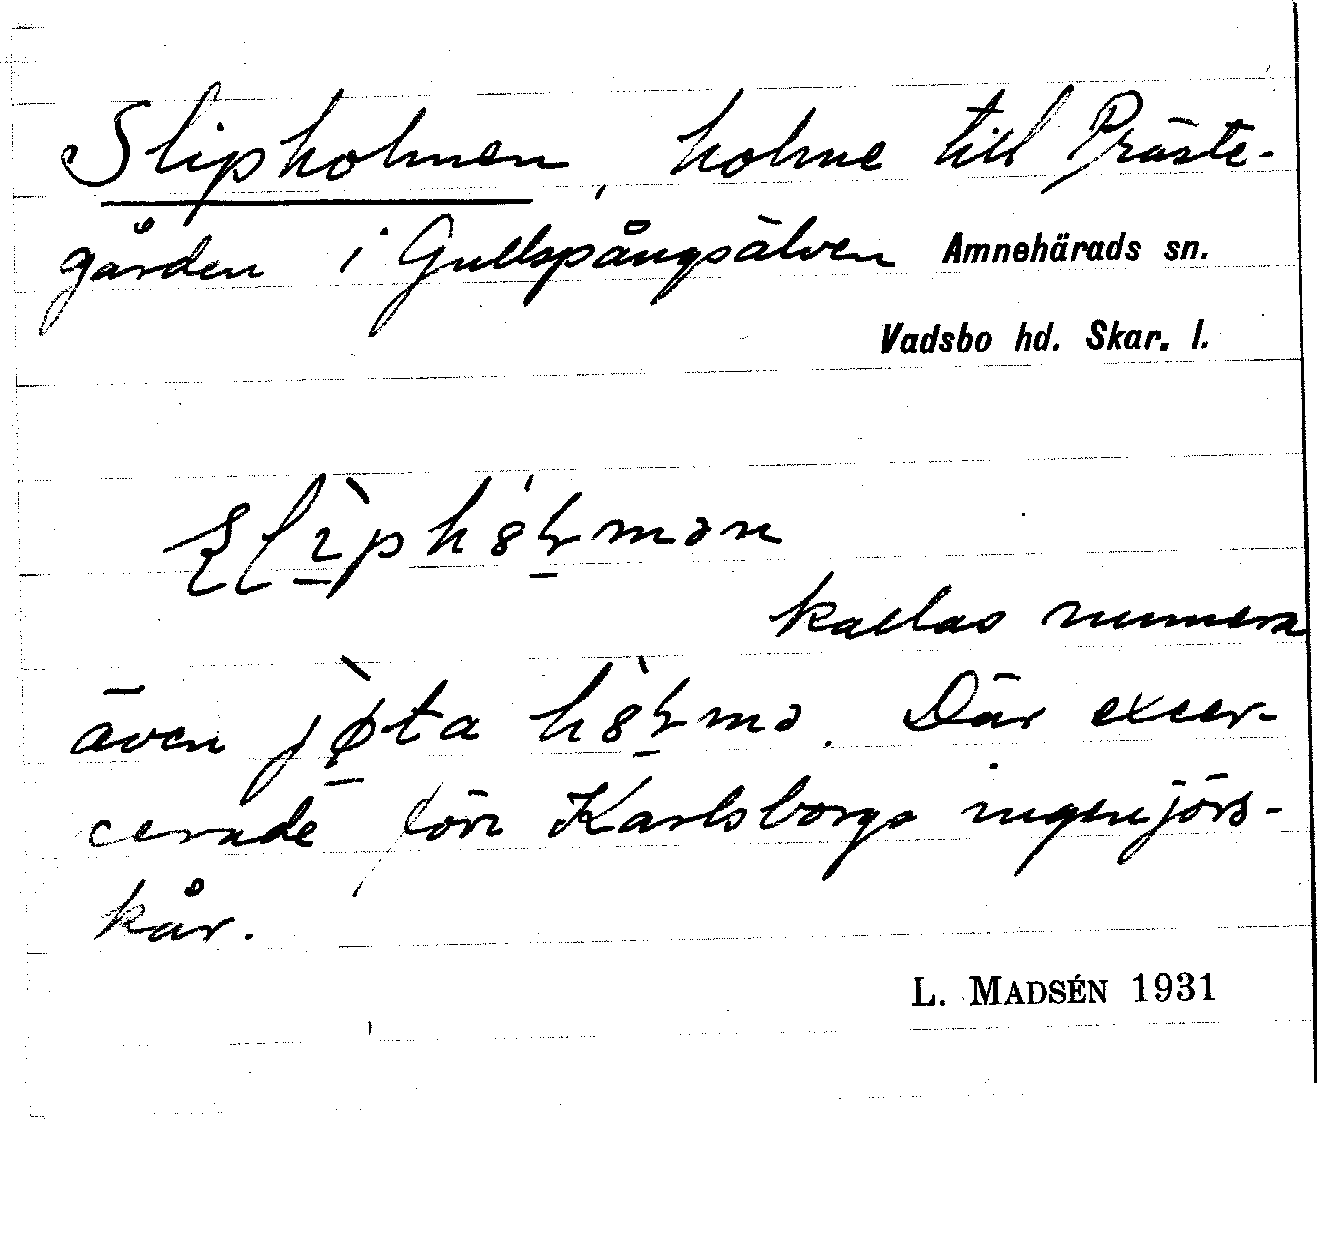 Slipholmen, holme till Präste-
gården i Gullspångsälven Amnehärads sn.
Vadsbo hd. Skar. l.
kallas numera
även jø̀ta Där excer-
cerade förr Karlsborgs ingenjörs-
kår.
L. MADSÉN 1931